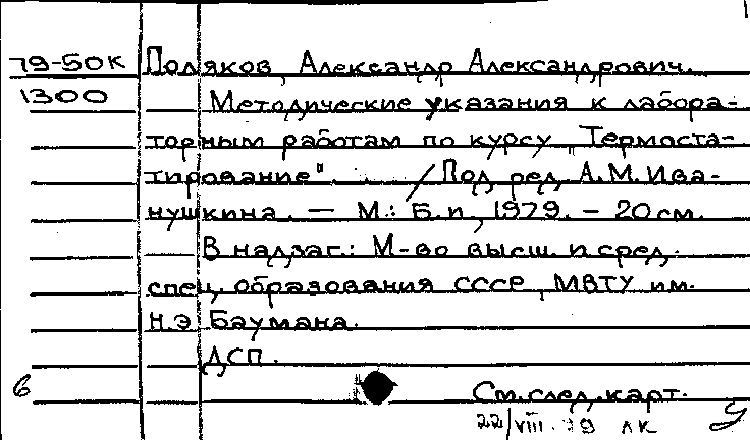 79-50К Поляков, Александр Александрович.
1300 Методические указания к лабора-
торным работам по курсу „Термоста-
тирование" / Под ред. А.М. Ива-
нушкина. — М.: Б.и., 1979. – 20 см.
В надзаг.: М-во высш. и сред.
спец. образования СССР, МВТУ им.
Н.Э. Баумана.
ДСП.
6 См. след. карт.
22/VIII-79 ЛК